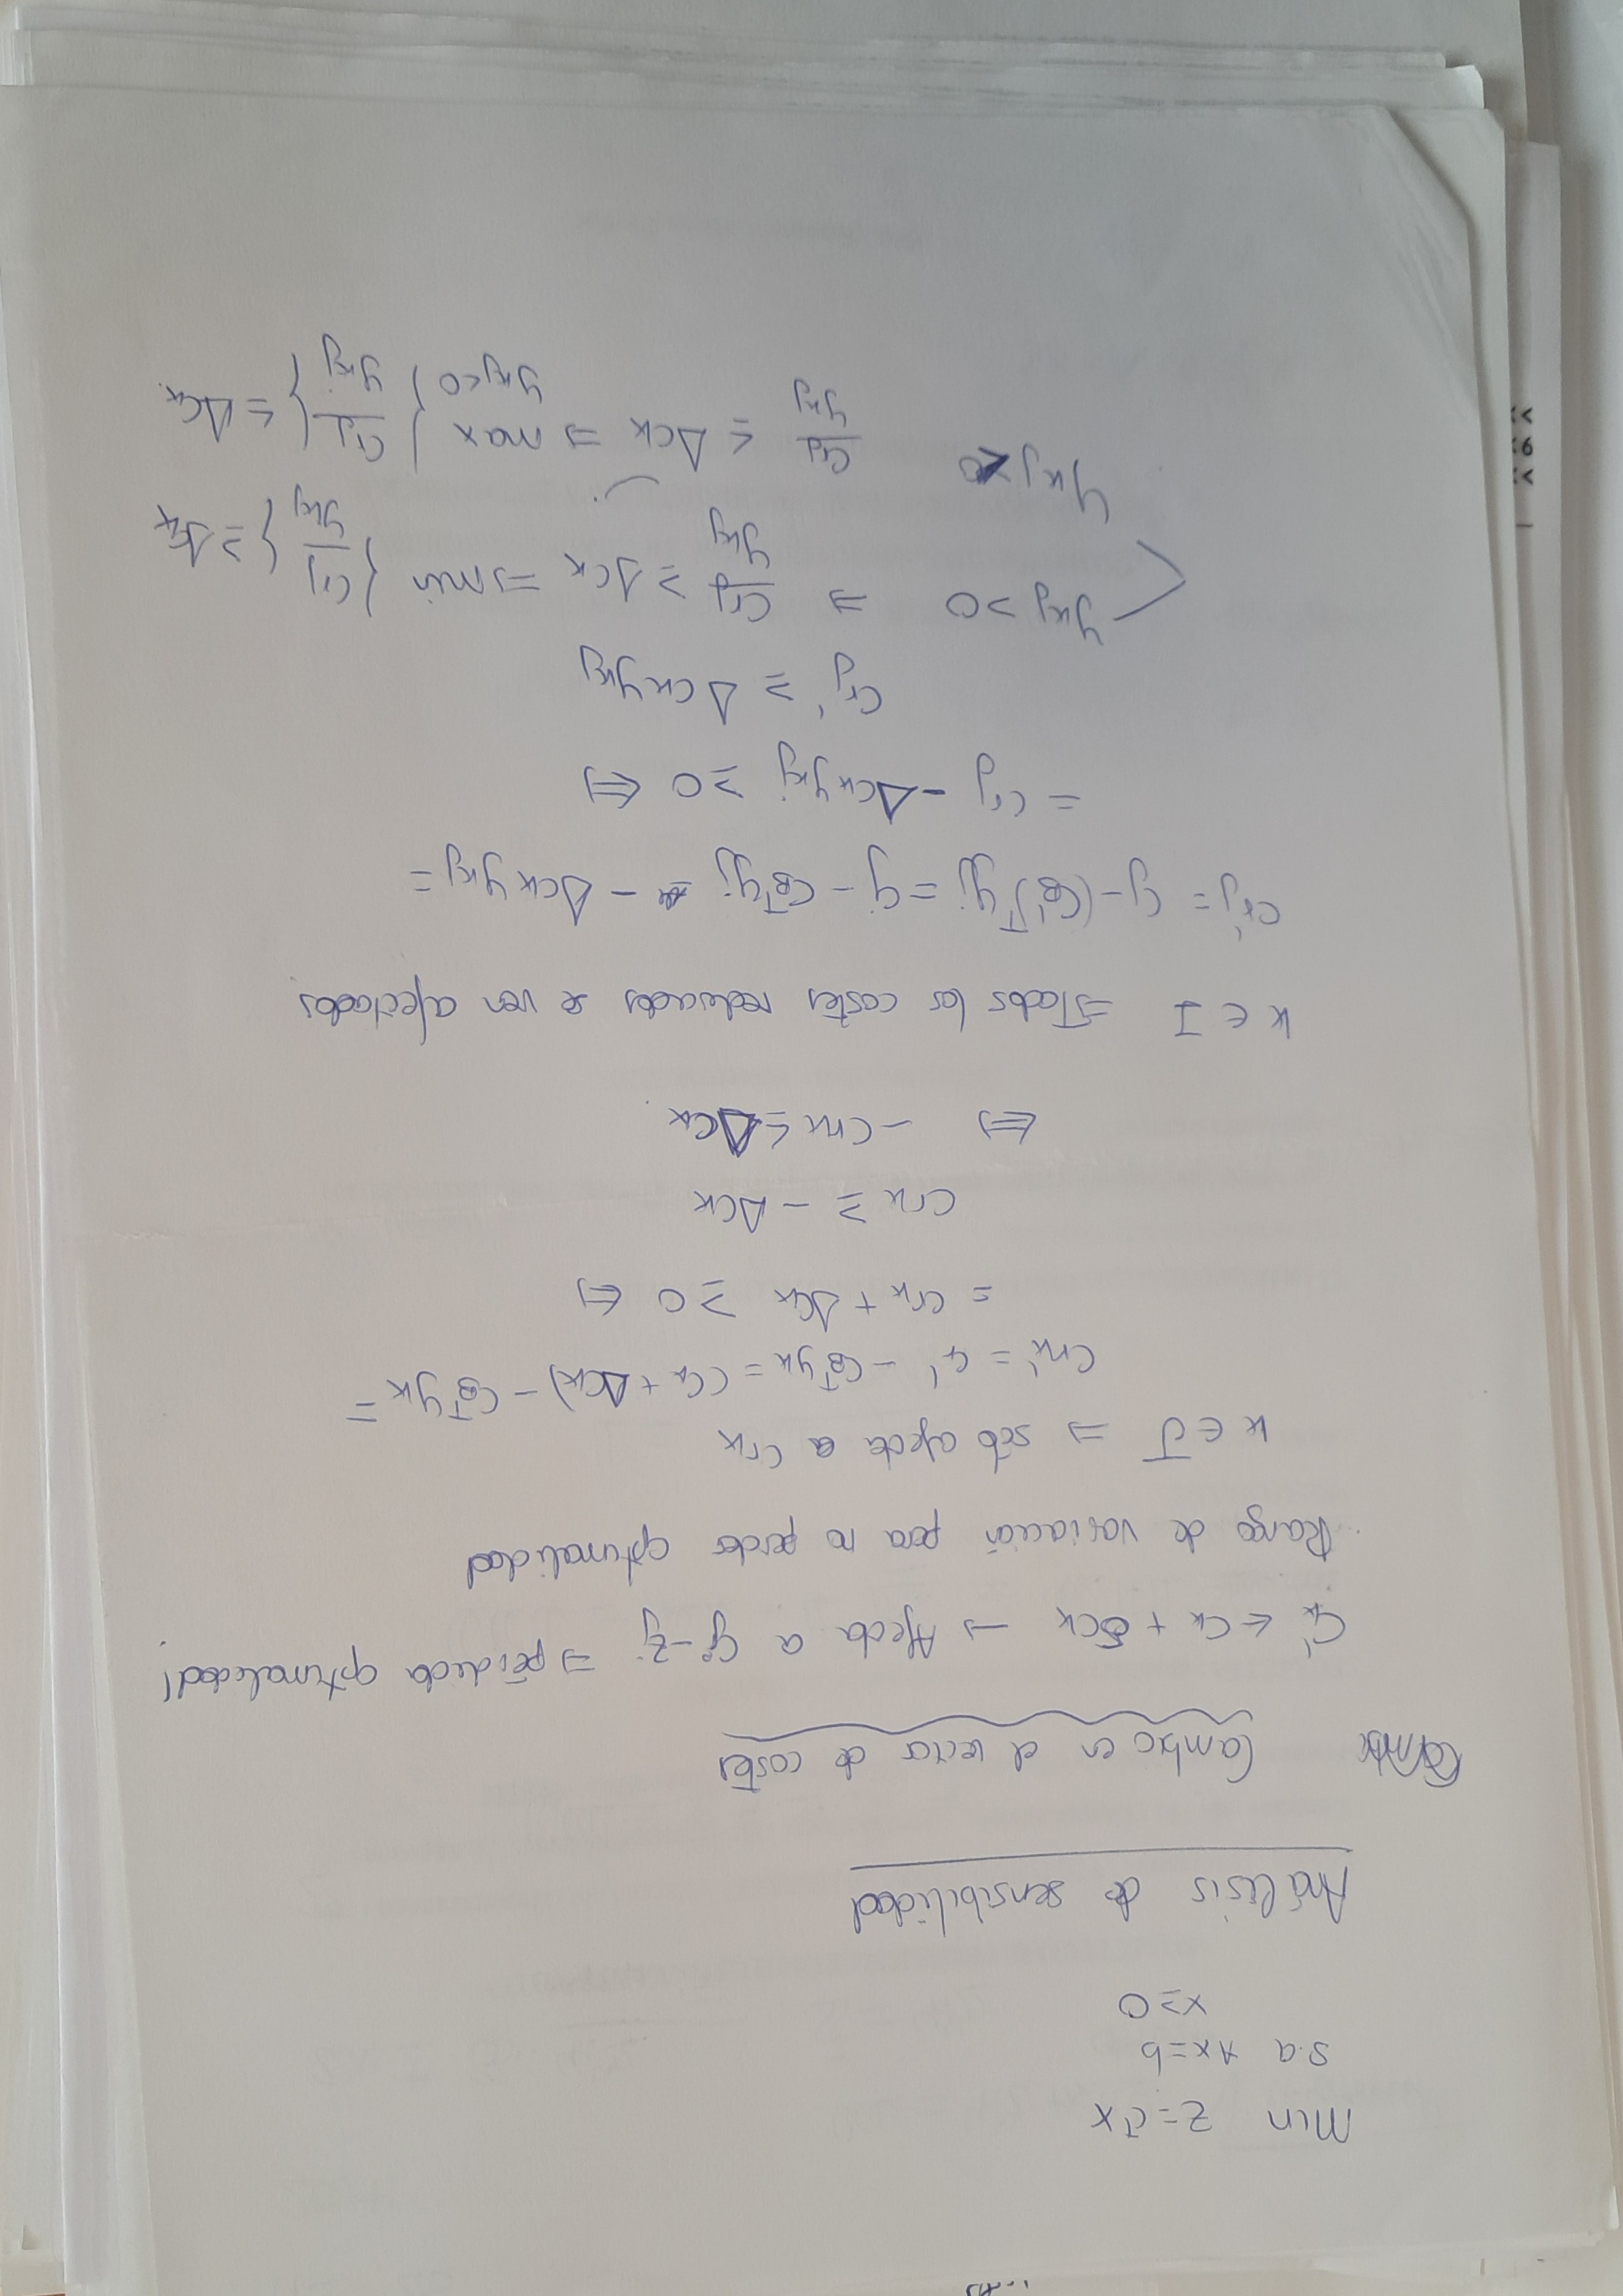 Min z = cᵀx
s.a Ax = b
x ≥ 0
Análisis de sensibilidad
Cambio en el vector de costes
c'k ← ck + δck → Afecta a cj - zj ⇒ pérdida optimalidad!
Rango de variación para no perder optimalidad
k ∈ J ⇒ solo afecta a crk
crk' = ck' - cBᵀyk = (ck + Δck) - cBᵀyk =
= crk + Δck ≥ 0 ⇔
crk ≥ - Δck
⇔ - crk ≤ Δck
k ∈ I ⇒ Todos los costes reducidos se ven afectados
cr'j = cj - (cB')ᵀyj = cj - cBᵀyj - Δck ykj =
= crj - Δck ykj ≥ 0 ⇔
crj' ≥ Δck ykj
ykj > 0 ⇒ crj/ykj ≥ Δck ⇒ min {crj/ykj} ≥ Δck
ykj < 0 crj/ykj ≤ Δck ⇒ max ykj<0 {crj/ykj} ≤ Δck